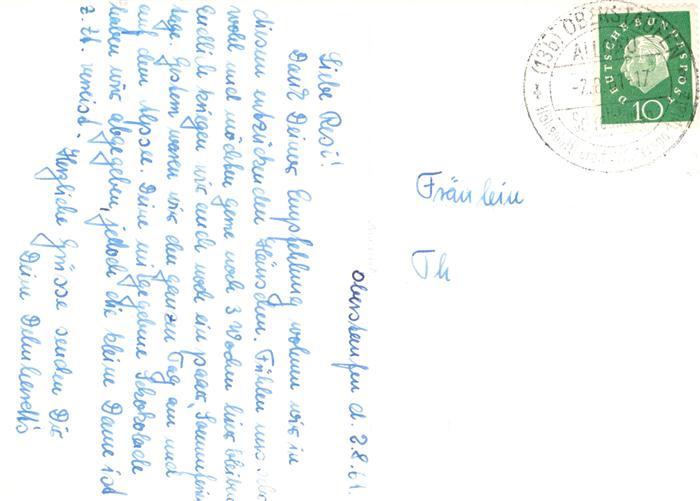 Oberstaufen d. 2.8.61.
Liebe Resi!
Dank Deiner Empfehlung wohnen wir in
diesem entzückenden Häuschen. Fühlen uns
wohl und möchten gerne noch 3 Wochen hier bleiben
endlich kriegen wir auch noch ein paar Sommerferien
tage. Gestern waren wir den ganzen Tag am und
auf der Alpsee. Deine mitgegebene Schokolade
haben wir abgegeben, jedoch die kleine Dame ist
z. Zt. verreist. Herzliche Grüsse senden Dir
Deine
Fräulein
Th
(13b) OBERSTAUFEN
ALLGÄU
DEUTSCHE BUNDESPOST
10